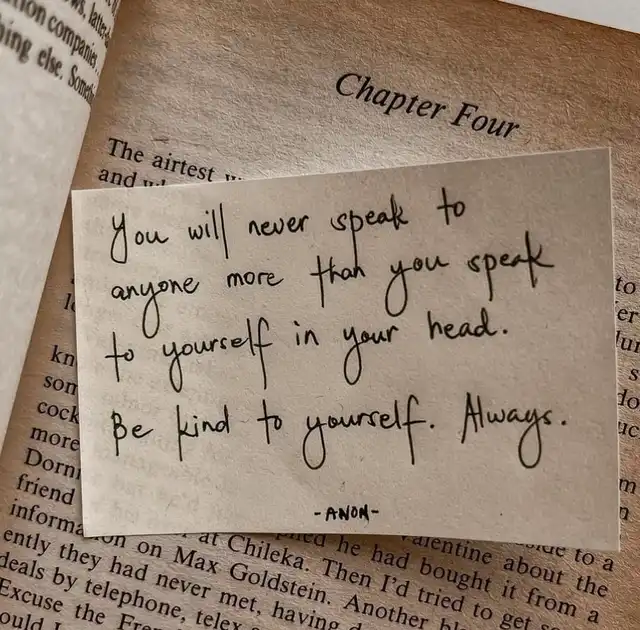 ws, latte
tion companies
hing else. Someth
Chapter Four
The airtest
and
You will never speak to
anyone more than you speak
to yourself in your head.
Be kind to yourself. Always.
-ANON-
to
er
s
do
uc
m
n
kn
som
cock
more
Dorn
friend
to a
valentine about the
at Chileka. Then he had bought it from a
information on Max Goldstein. Then I'd tried to get
ently they had never met, having
deals by telephone, telex
Another
Excuse the Fre
ould